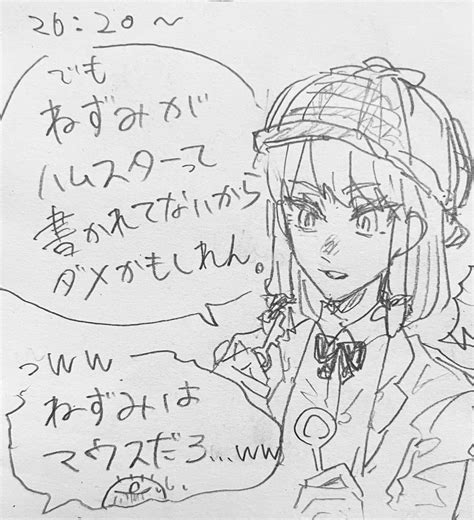 26:20〜
でも
ねずみが
ハムスターって
書かれてないから
ダメかもしれん。
っww
ねずみは
マウスだろ...ww